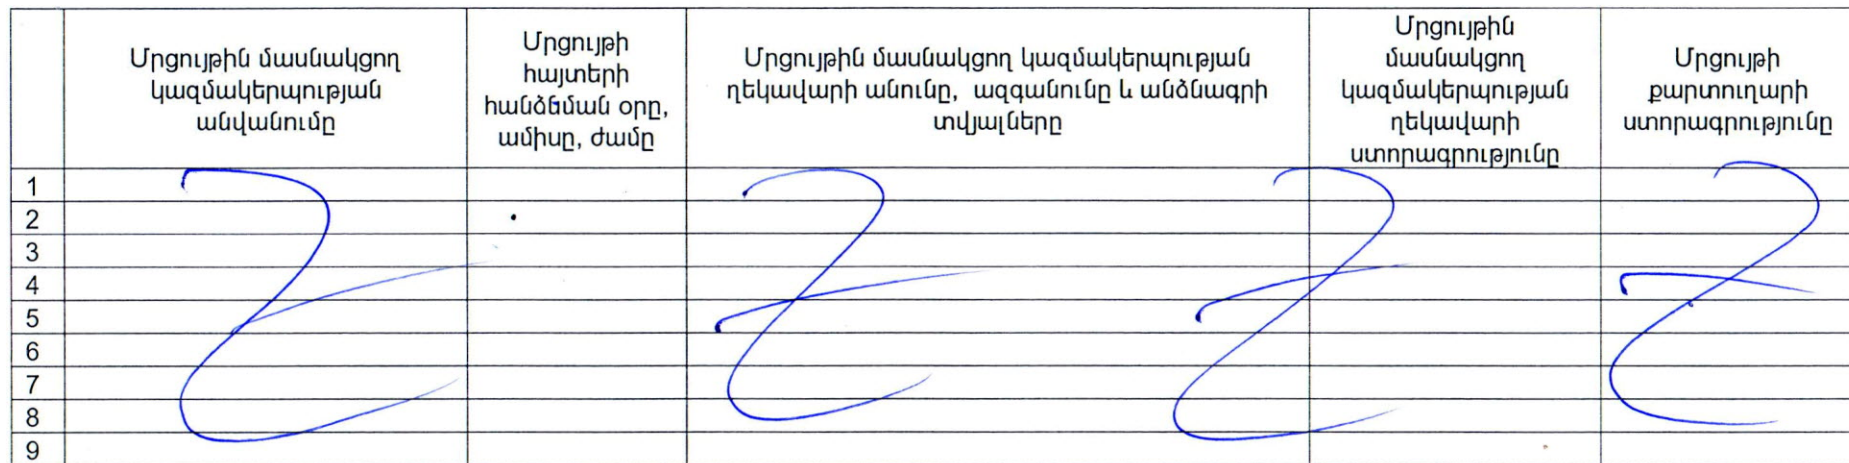 Մրցույթին մասնակցող
կազմակերպության
անվանումը
Մրցույթի
հայտերի
հանձնման օրը,
ամիսը, ժամը
Մրցույթին մասնակցող կազմակերպության
ղեկավարի անունը, ազգանունը և անձնագրի
տվյալները
Մրցույթին
մասնակցող
կազմակերպության
ղեկավարի
ստորագրությունը
Մրցույթի
քարտուղարի
ստորագրությունը
1
2
3
4
5
6
7
8
9